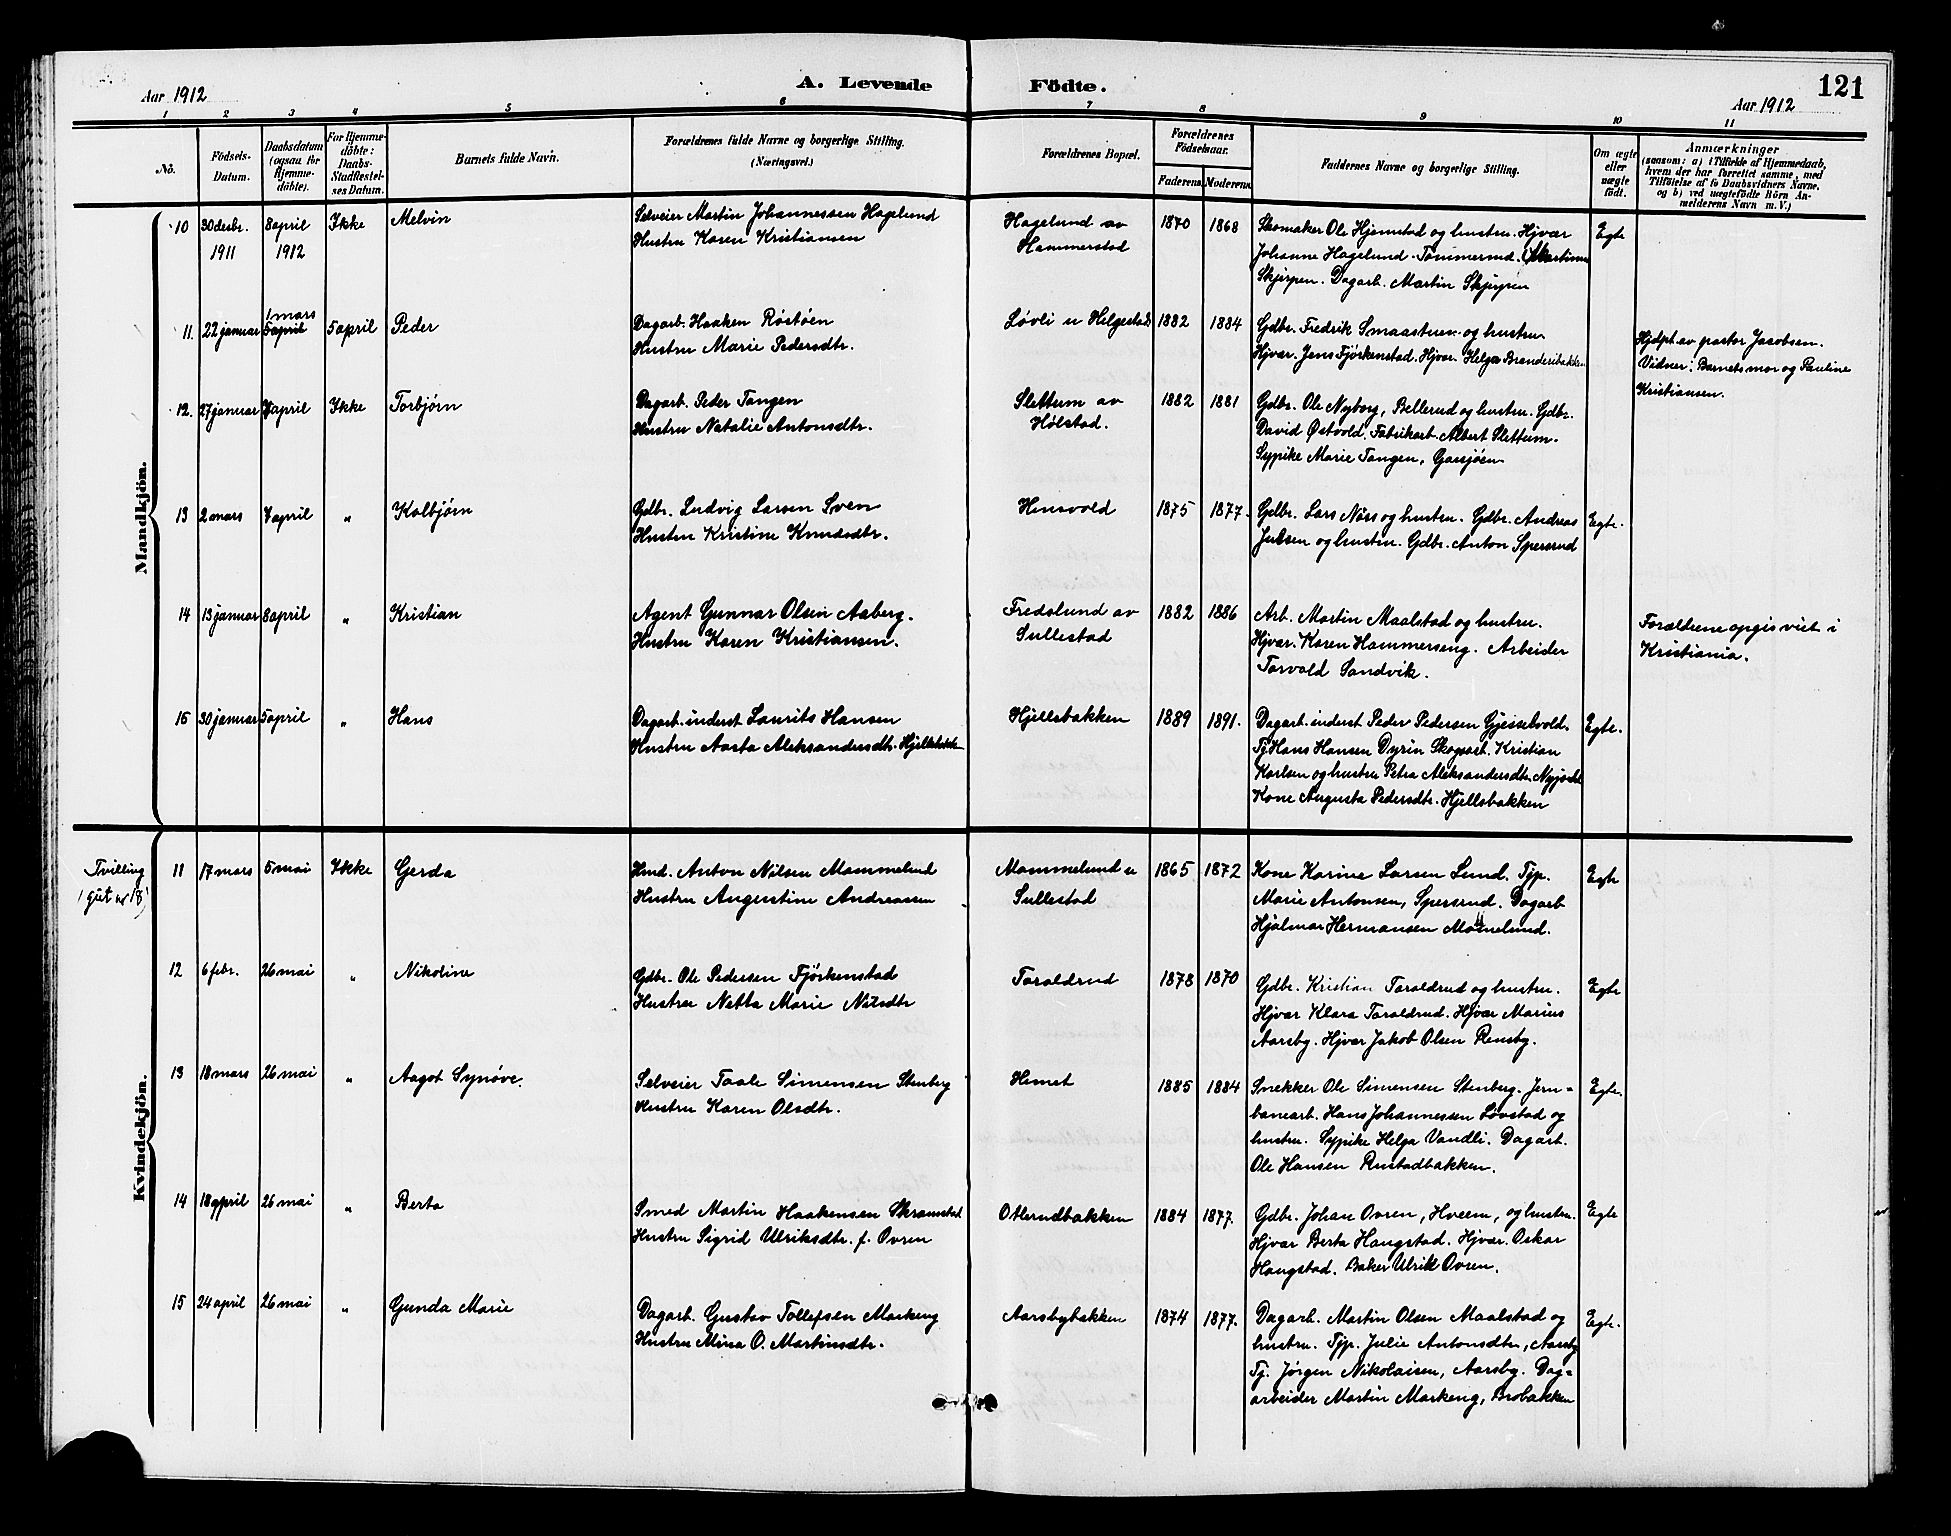 121
Aar 1912
A. Levende
Födte.
Aar 1912
1 2 3 4 5 6 7 8 9 10 11
No.
Födsels-
Datum.
Daabsdatum
(ogsaa for
Hjemme-
döbte).
For Hjemme-
döbte:
Daabs-
Stadfæstel-
ses Datum.
Barnets fulde Navn.
Forældrenes fulde Navne og borgerlige Stilling.
(Næringsvei.)
Forældrenes Bopæl.
Forældrenes
Födselsaar.
Faderens Moderens
Faddernes Navne og borgerlige Stilling.
Om ægte
eller
uægte
født.
Anmærkninger
(saasom: a) i Tilfælde af Hjemmedaab,
hvem der har forrettet samme, med
Tilföielse af to Daabsvidners Navne,
og b) ved uægtefödte Börn An-
melderens Navn m. V.)
Mandkjön.
10 30 desbr. 8 april Ikke Melvin
1911 1912
Selveier Martin Johannessen Hagelund
Hustru Karen Kristiansen
Hagelund av
Hammerstad
1870 1868
Skomaker Ole Hjemstad og hustru. Hjvær
Johanne Hagelund. Tømmermd. Martinus
Skjerpen. Dagarb. Martin Skjerpen
Egte
11. 22 januar 1 mars
5 april 5 april Peder
Dagarb. Haaken Røstøen
Hustru Marie Pedersdtr.
Løvli u Helgestad
1882 1884
Gdbr. Fredrik Smaastuen og hustru
Hjvar. Jens Fjørkenstad. Hjvar. Helga Branderibakken
Hjdpt. av pastor Jacobsen.
Vidner: Barnets mor og Pauline
Kristiansen.
12. 27 januar 7 april Ikke Torbjørn
Dagarb. Peder Tangen
Hustru Natalie Antonsdtr.
Slettum av
Hølstad.
1882 1881
Gdbr. Ole Nyborg, Bellerud og hustru. Gdbr.
David Østvold. Fabrikarb. Albert Slettum.
Sypike Marie Tangen, Gaasjøen
13 2 mars 7 april " Kolbjørn
Gdbr. Ludvig Larsen Sven
Hustru Kristine Knudsdtr.
Hensvold
1875 1877.
Gdbr. Lars Næss og hustru. Gdbr. Andreas
Julsen og hustru. Gdbr. Anton Spersrud
Egte.
14 13 januar 8 april " Kristian
Agent Gunnar Olsen Aaberg.
Hustru Karen Kristiansen.
Fredslund av
Sullestad
1882 1886
Arb. Martin Maalstad og hustru.
Hjvar. Karen Hammerseng. Arbeider
Torvald Sandvik.
Forældrene opgis viet i
Kristiania.
15 30 januar 5 april " Hans
Dagarb. inderst Laurits Hansen
Hustru Aasta Aleksandersdtr. Hjellsbakken
Hjellsbakken
1889 1891.
Dagarb. inderst Peder Pedersen Gjessebvold.
Tj Hans Hansen Dyrin Skogsarb. Kristian
Karlsen og hustru Petra Aleksandersdtr.
Kone Augusta Pedersdtr. Hjellsbakken
Egte.
Kvindekjön.
Tvilling
(gut nr 18)
11 17 mars 5 mai Ikke Gerda
Hmd. Anton Nilsen Mammelund
Hustru Angentine Andreassen
Mammelund u
Sullestad
1865 1872
Kone Karine Larsen Lund. Tjp.
Marie Antonsen, Spersrud. Dagarb
Hjalmar Hermansen Mamelund.
Egte
12 6 febr. 26 mai " Nikoline
Gdbr. Ole Pedersen Fjørkenstad
Hustru Netta Marie Nilsdtr
Taraldrud
1878 1870
Gdbr. Kristian Taraldrud og hustru.
Hjvar Klara Taraldrud. Hjvar Marius
Aarsby. Hjvar Jakob Olsen Rensby.
Egte
13 18 mars 26 mai " Aagot Synøve.
Selveier Taale Simensen Stenberg
Hustru Karen Olsdtr.
Hemet
1885 1884
Snekker Ole Simensen Stenberg. Jern-
banearb. Hans Johannessen Løvstad og
hustru. Sypike Helga Vandli. Dagarb.
Ole Hansen Rustadbakken.
Egte.
14 18 april 26 mai " Berta
Smed Martin Haakensen Skramstad
Hustru Sigrid Ulriksdtr. f. Ovren
Otterudbakken
1884 1877.
Gdbr. Johan Ovren, Hveem, og hustru.
Hjvar Berta Haugstad. Hjvar. Oskar
Haugstad. Baker Ulrik Ovren.
Egte
15 24 april 26 mai " Gunda Marie
Dagarb. Gustav Tollefsen Markeng
Hustru Mina O. Martinsdtr.
Aarsbybakken
1874 1877.
Dagarb. Martin Olsen Maalstad og
hustru. Tjp. Julie Antonsdtr, Aarsby
Tj. Jørgen Nikolaisen, Aarsby. Dag-
arbeider Martin Markeng, Brobakken
Egte.